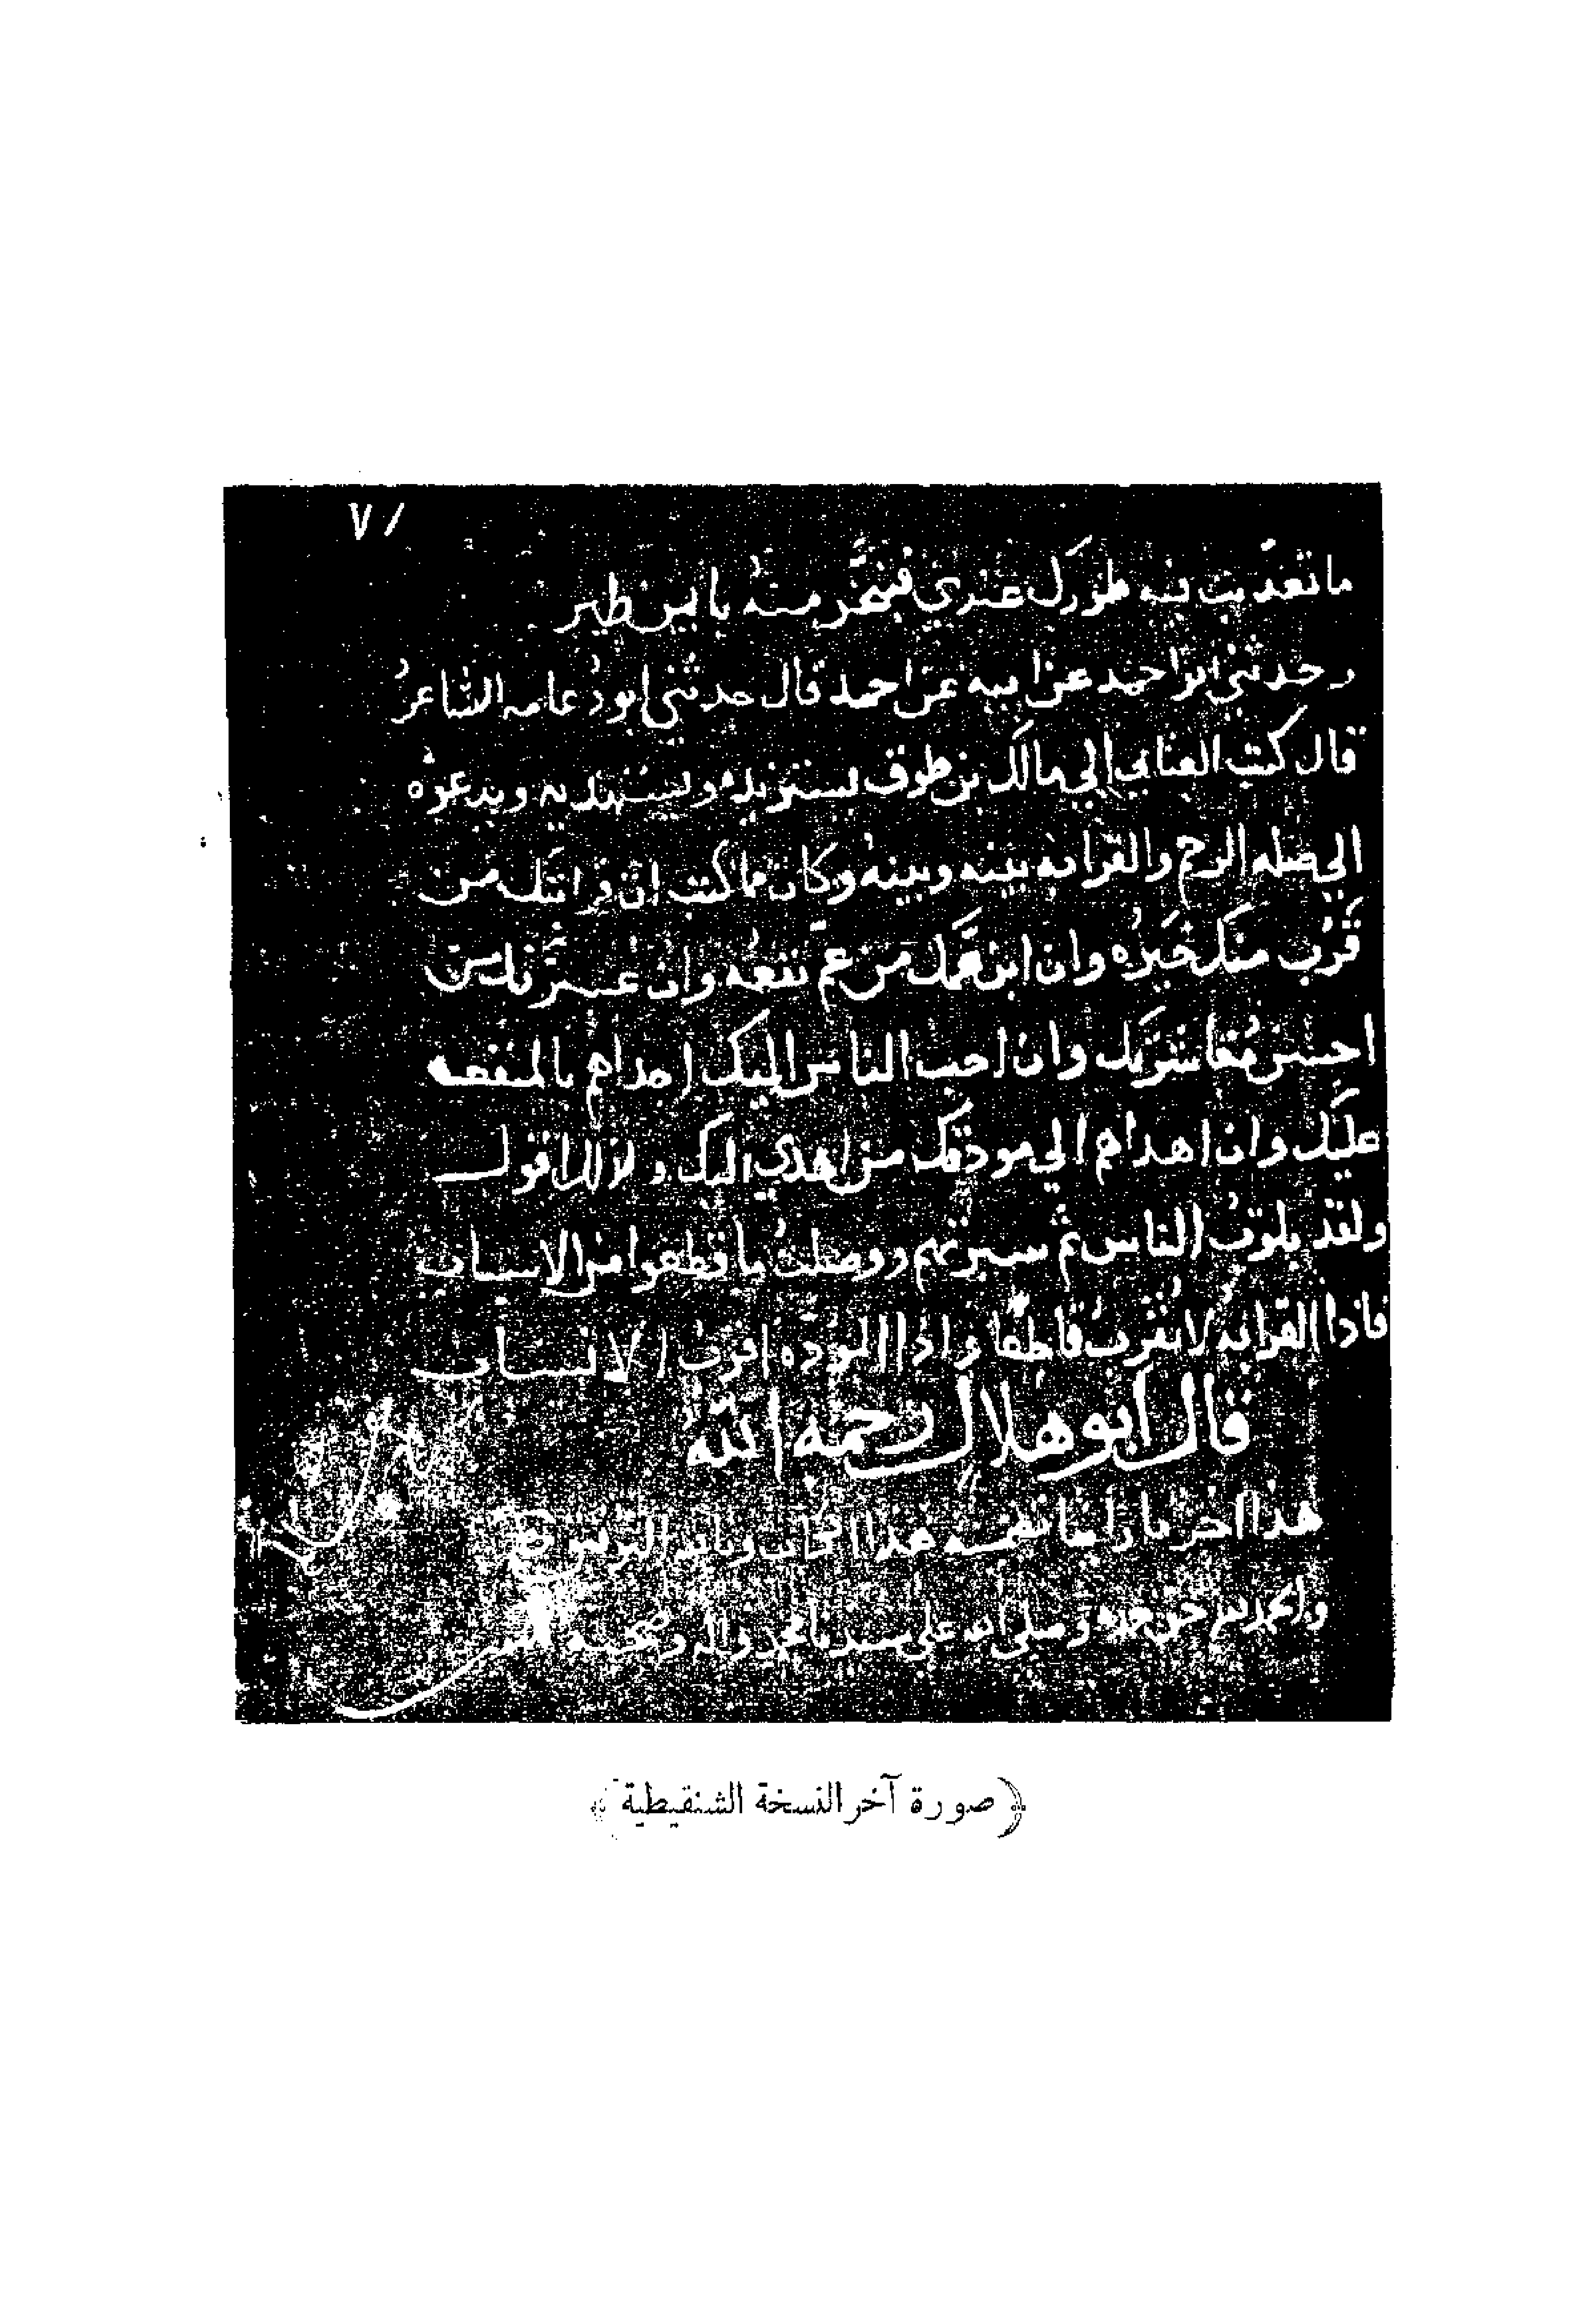 ٧١
ما تعديت فيه طورك عندي فتنحز منه يا بن طير
وحدثني ابو احمد عن ابيه عن احمد قال حدثني ابو دعامه الشاعر
قال كتب العتابي الي مالك بن طوق يستزيده ويستهديه ويدعوه
الي صله الرحم والقرابه بينه وبينه وكان ما كتب ان قرابتك من
قرب منك خيره وان ابن عمك من عم نفعه وان عشيرتك من
احسن معاشرتك وان احب الناس اليك اجداهم بالمنفعه
عليك وان اهداهم الي مودتك من اهدي اليك ولذلك اقول
ولقد بلوت الناس ثم سبرتهم ووصلت ما قطعوا من الاسباب
فاذا القرابه لا تقرب قاطعا واذا الموده اقرب الانساب
قال ابو هلال رحمه الله
هذا اخر ما راينا تضمينه هذا الكتاب وبالله التوفيق
والحمد لله حق حمده وصلى الله على سيدنا محمد واله وصحبه
﴿صورة آخر النسخة الشنقيطية﴾